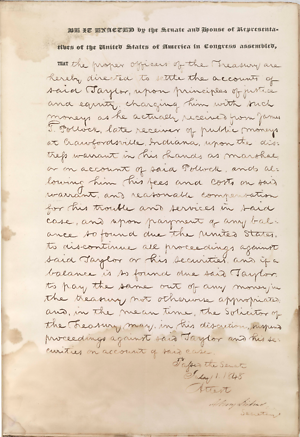 BE IT ENACTED by the Senate and House of Representa-
tives of the United States of America in Congress assembled,
THAT the proper officers of the Treasury are
hereby directed to settle the account of
said Taylor, upon principles of justice
and equity, charging him with such
moneys as he actually received from James
T. Pollock, late receiver of public moneys
at Crawfordsville, Indiana, upon the dis-
tress warrant in his hands as marshal
or on account of said Pollock, and al-
lowing him his fees and costs on said
warrant, and reasonable compensation
for his trouble and services in said
case, and upon payment of any bal-
ance so found due the United States,
to discontinue all proceedings against
said Taylor or his securities and if a
balance is so found due said Taylor
to pay the same out of any money in
the treasury not otherwise appropriated
and, in the mean time, the Solicitor of
the Treasury, may, in his discretion, suspend
proceedings against said Taylor and his se-
curities on account of said case
Passed the Senate
1845
Attest
Secretary